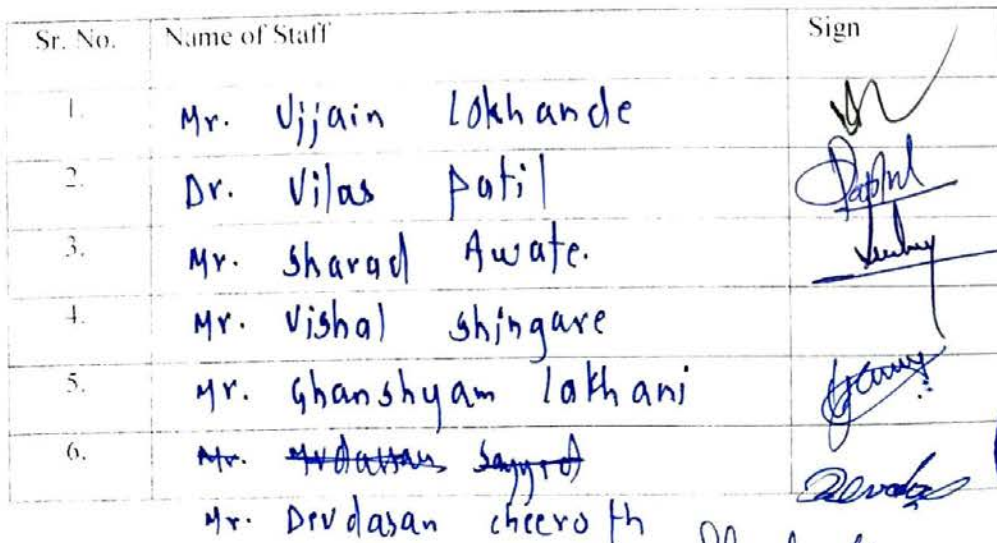 Sr. No. Name of Staff Sign
1. Mr. Ujjain Lokhande
2. Dr. Vilas Patil
3. Mr. Sharad Awate.
4. Mr. Vishal Shingare
5. Mr. Ghanshyam Lakhani
6. Mr. Sayyed
Mr. Devdasan Cheeroth